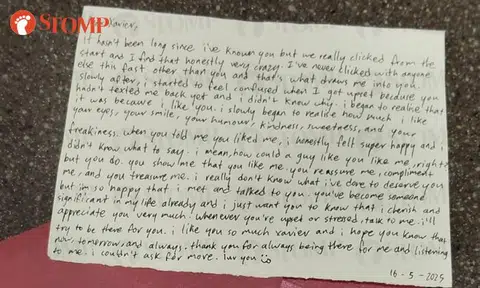 STOMP
Xavier,
It hasn't been long since i've known you but we really clicked from the
start and I find that honestly very crazy. I've never clicked with anyone
else this fast other than you and that's what draws me into you.
slowly after, i started to feel confused when I got upset because you
hadn't texted me back yet and i didn't know why. i began to realise that
it was because i like you. i slowly began to realise how much i like
your eyes, your smile, your humour, kindness, sweetness, and your
freakiness. when you told me you liked me, i honestly felt super happy and i
didn't know what to say. i mean, how could a guy like you like me, right?
but you do. you show me that you like me. you reassure me, compliment
me, and you treasure me. i really don't know what i've done to deserve you
but im so happy that i met and talked to you. you've become someone
significant in my life already and i just want you to know that i cherish and
appreciate you very much. whenever you're upset or stressed, talk to me. i'll
try to be there for you. i like you so much xavier and i hope you know that
now, tomorrow, and always. thank you for always being there for me and listening
to me. i couldn't ask for more. luv you
16-5-2025